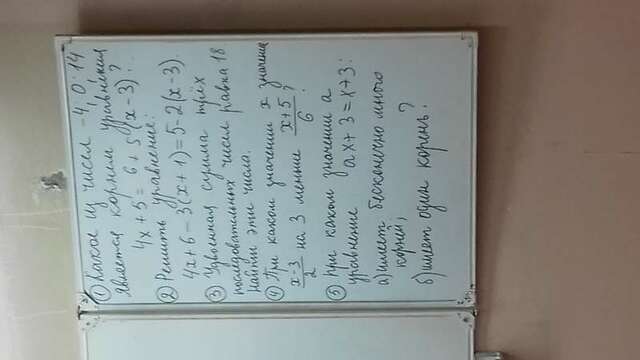 ① Какое из чисел -4; 0; 14
является корнем уравнения
4x + 5 = 6 + 5(x - 3)?
② Решить уравнение:
4x + 6 - 3(x + 1) = 5 - 2(x - 3).
③ Удвоенная сумма трёх
последовательных чисел равна 18.
Найти эти числа.
④ При каком значении x значение
(x-3)/2 на 3 меньше (x+5)/6?
⑤ При каком значении a
уравнение ax + 3 = x + 3:
а) имеет бесконечно много
корней;
б) имеет один корень?